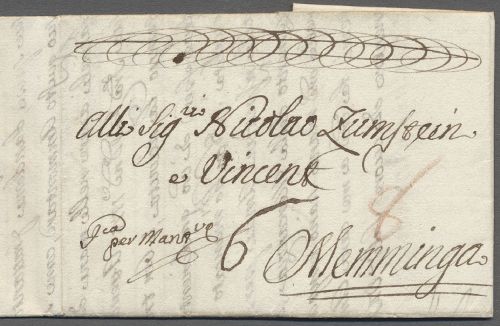 Alli Sig.rii Nicolao Zumstein
e Vincent
F.ca per Mant.va
6
8
Memminga